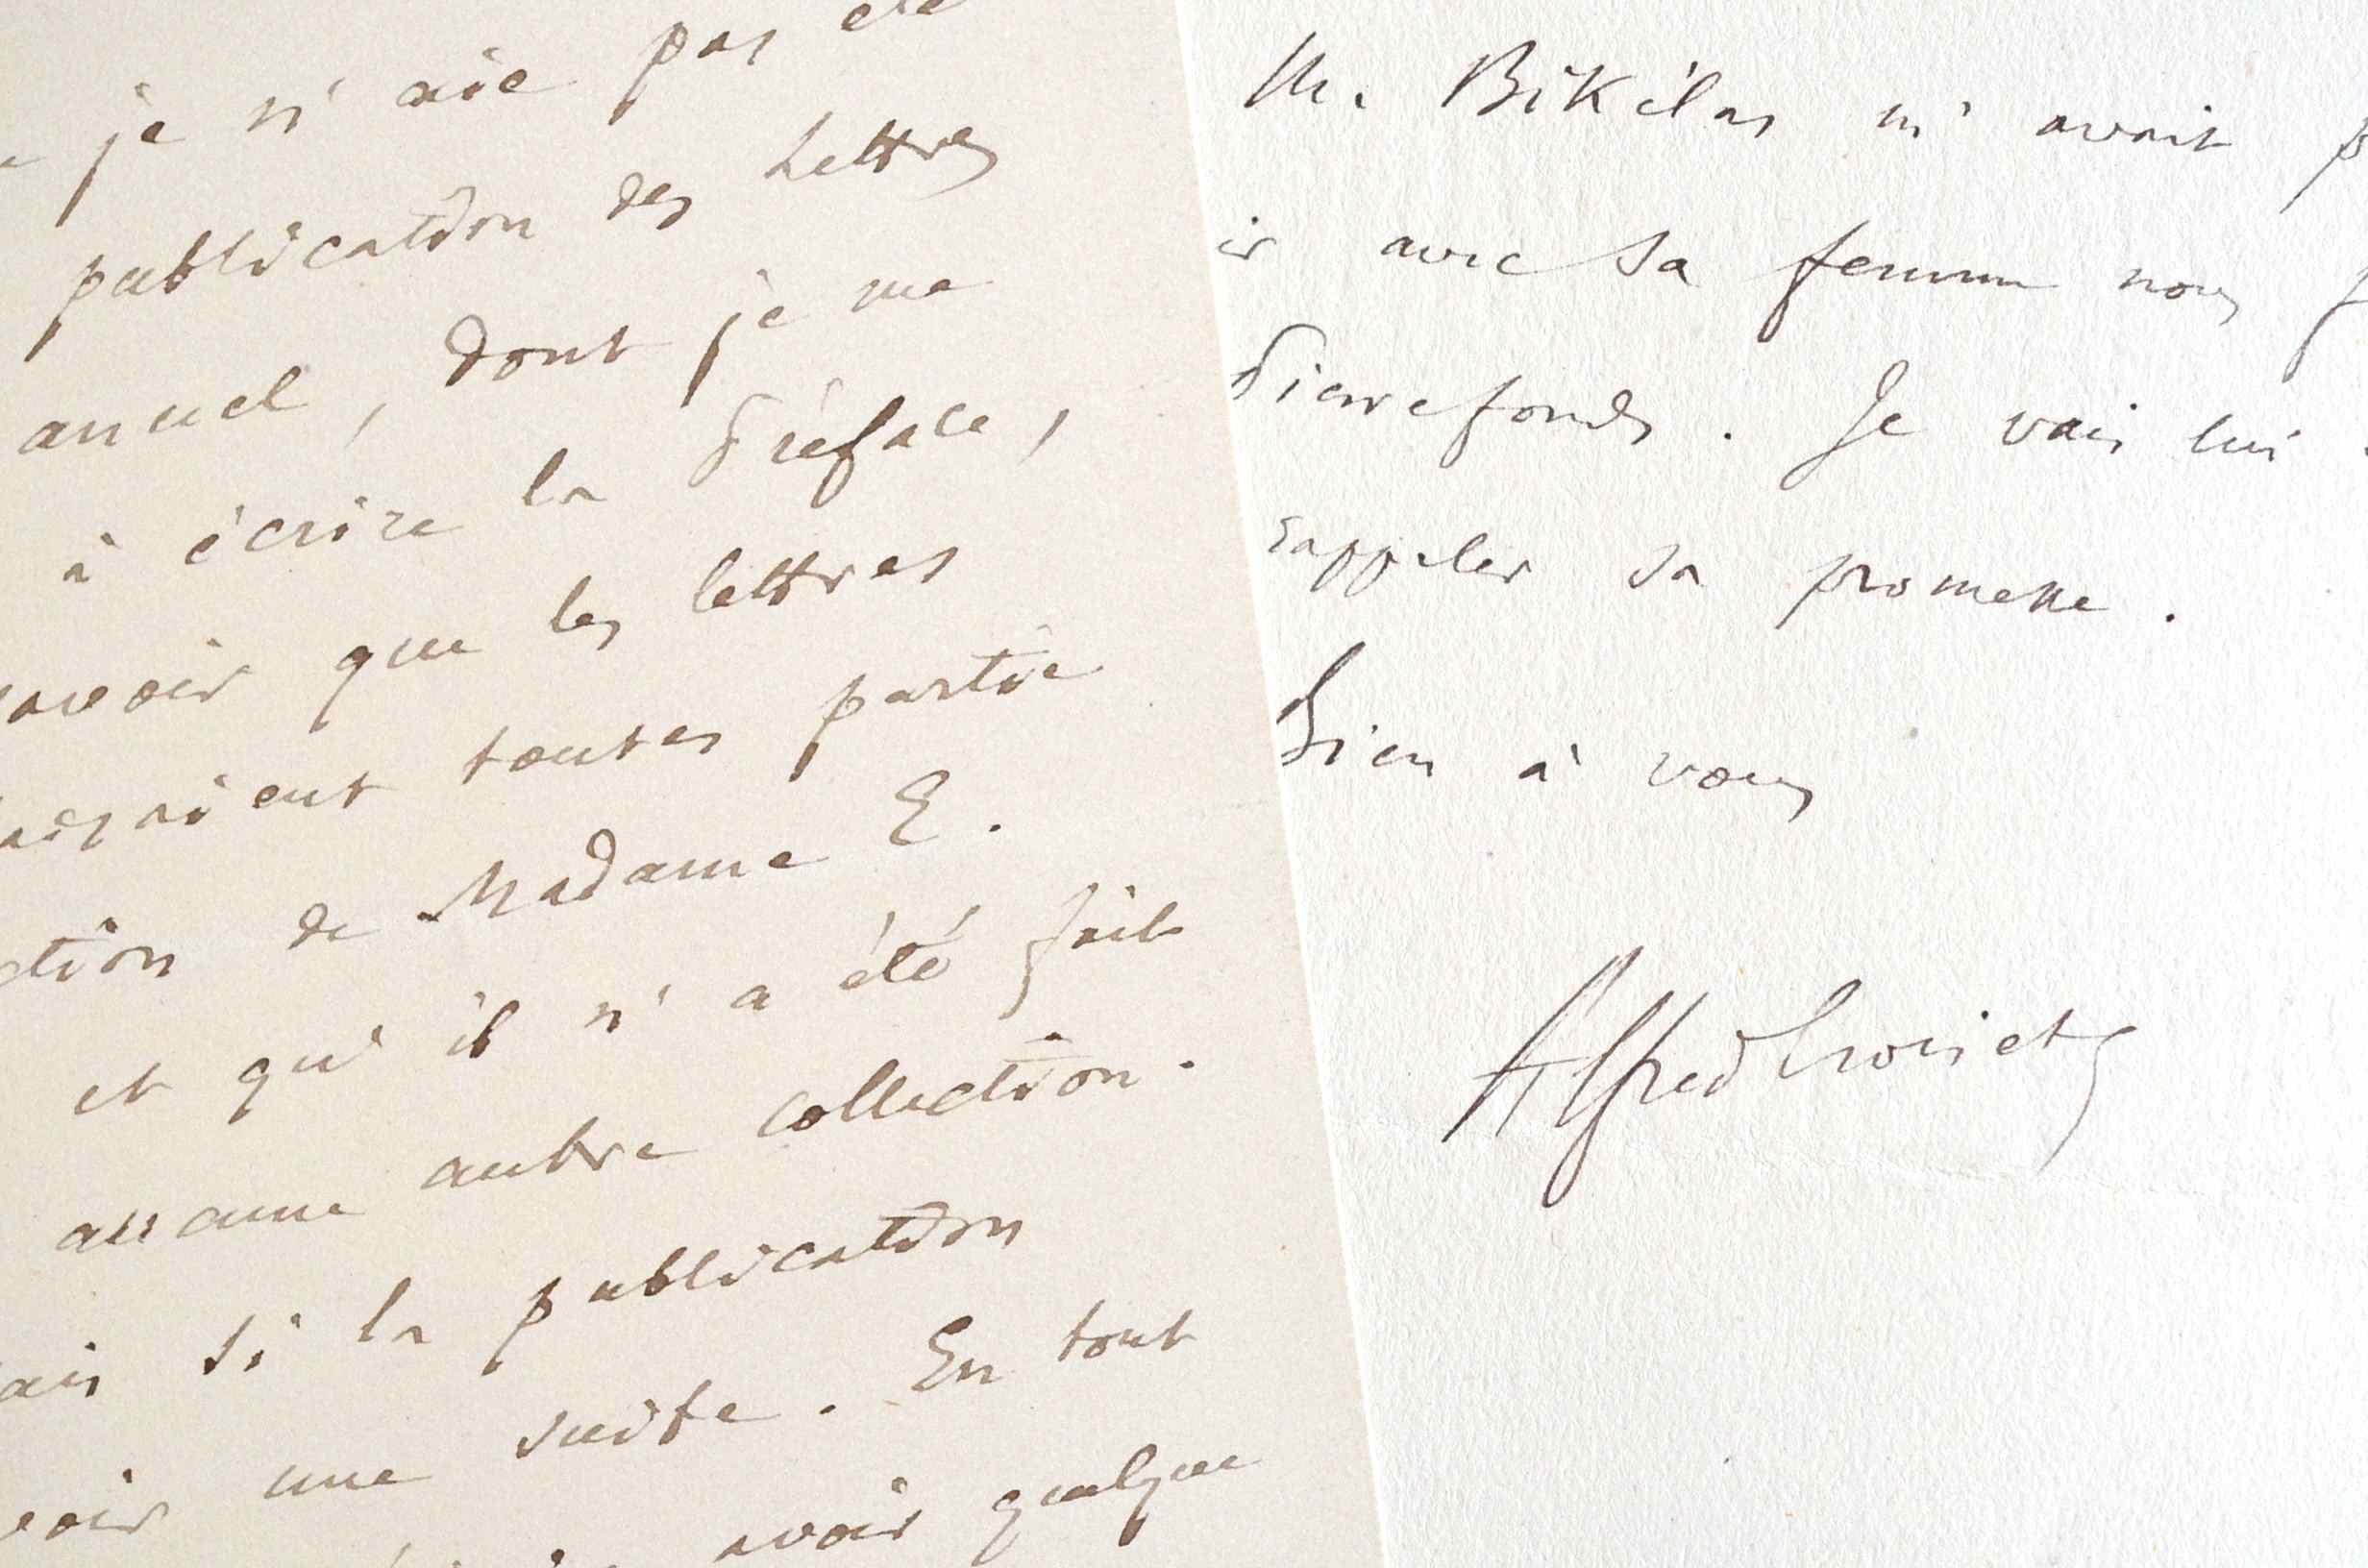 je n'aie pas été
publication des Lettres
anuel, dont je me
à écrire la Préface,
savoir que les lettres
toutes partie
ction de Madame E.
et qu'il n'a été fait
aucune autre collection.
ais si la publication
voir une suite. En tout
avoir quelque
M. Bikélas m'avait p
ir avec sa femme nous
Pierrefonds. Je vais lui
rappeler sa promesse.
Bien à vous
Alfred Croiset